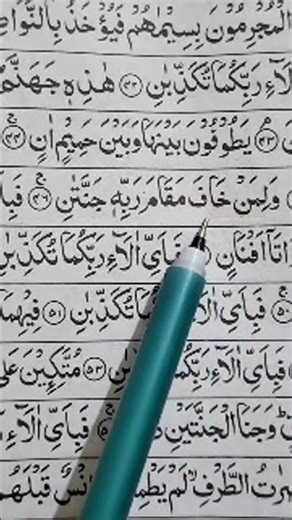 الْمُجْرِمُوْنَ بِسِيْمٰىهُمْ فَيُؤْخَذُ بِالنَّوَا
لَآءِ رَبِّكُمَا تُكَذِّبٰنِ ﴿۴۲﴾ هٰذِهٖ جَهَنَّمُ
يَطُوْفُوْنَ بَيْنَهَا وَبَيْنَ حَمِيْمٍ اٰنٍ ﴿۴۴﴾
وَلِمَنْ خَافَ مَقَامَ رَبِّهٖ جَنَّتٰنِ ﴿۴۶﴾ فَبِاَ
اتَآ اَفْنَانٍ فَبِاَيِّ اٰلَآءِ رَبِّكُمَا تُكَذِّبٰنِ
﴿۵۰﴾ فَبِاَيِّ اٰلَآءِ تُكَذِّبٰنِ ﴿۵۱﴾ فِيْهِمَا
فَبِاَيِّ اٰلَآءِ رَبِّكُمَا ﴿۵۳﴾ مُتَّكِـِٕيْنَ عَلٰى
وَجَنَا الْجَنَّتَيْنِ فَبِاَيِّ اٰلَآءِ
صِرٰتُ الطَّرْفِ لَمْ اِنْسٌ قَبْلَهُمْ